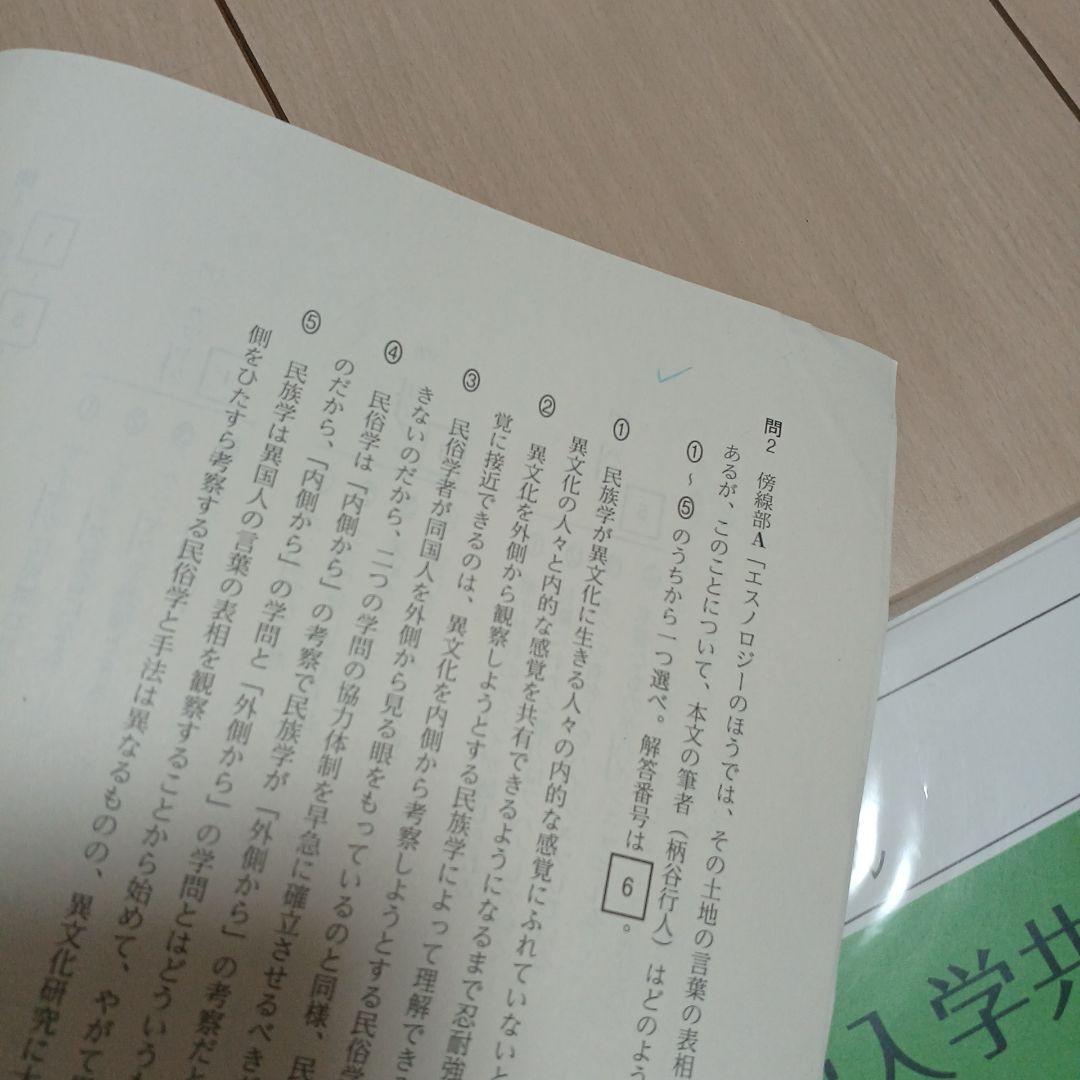 問2 傍線部A「エスノロジーのほうでは、その土地の言葉の表相
あるが、このことについて、本文の筆者（柄谷行人）はどのよう
①～⑤のうちから一つ選べ。解答番号は 6 。
① 民族学が異文化に生きる人々の内的な感覚にふれていないと
異文化の人々と内的な感覚を共有できるようになるまで忍耐強
② 異文化を外側から観察しようとする民族学によって理解でき
覚に接近できるのは、異文化を内側から考察しようとする民俗学
③ 民俗学者が同国人を外側から見る眼をもっているのと同様、民
きないのだから、二つの学問の協力体制を早急に確立させるべき
④ 民俗学は「内側から」の考察で民族学が「外側から」の考察だと
のだから、「内側から」の学問と「外側から」の学問とはどういう
⑤ 民族学は異国人の言葉の表相を観察することから始めて、やがて
側をひたすら考察する民俗学と手法は異なるものの、異文化研究に
入学共